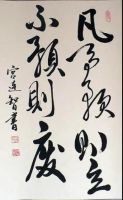 凡事預則立
不預則廢
智書